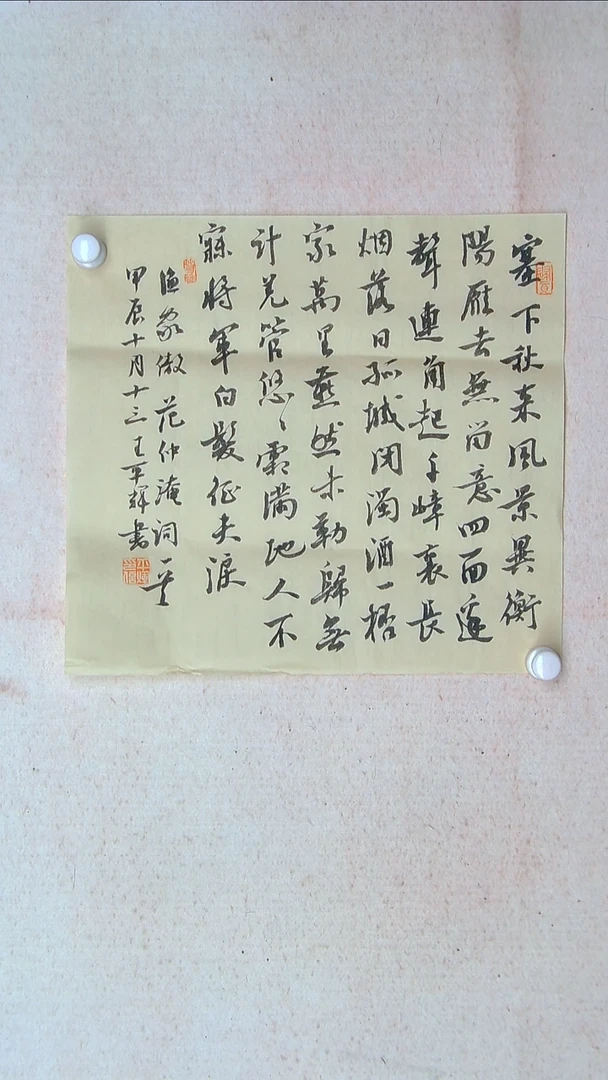 塞下秋来風景異衡
陽雁去無留意四面邊
聲連角起千嶂裏長
烟落日孤城闭濁酒一杯
家萬里燕然未勒歸無
計羌管悠〻霜滿地人不
寐将軍白髮征夫淚
漁家傲 范仲淹词一首
甲辰十月十三王平辉書